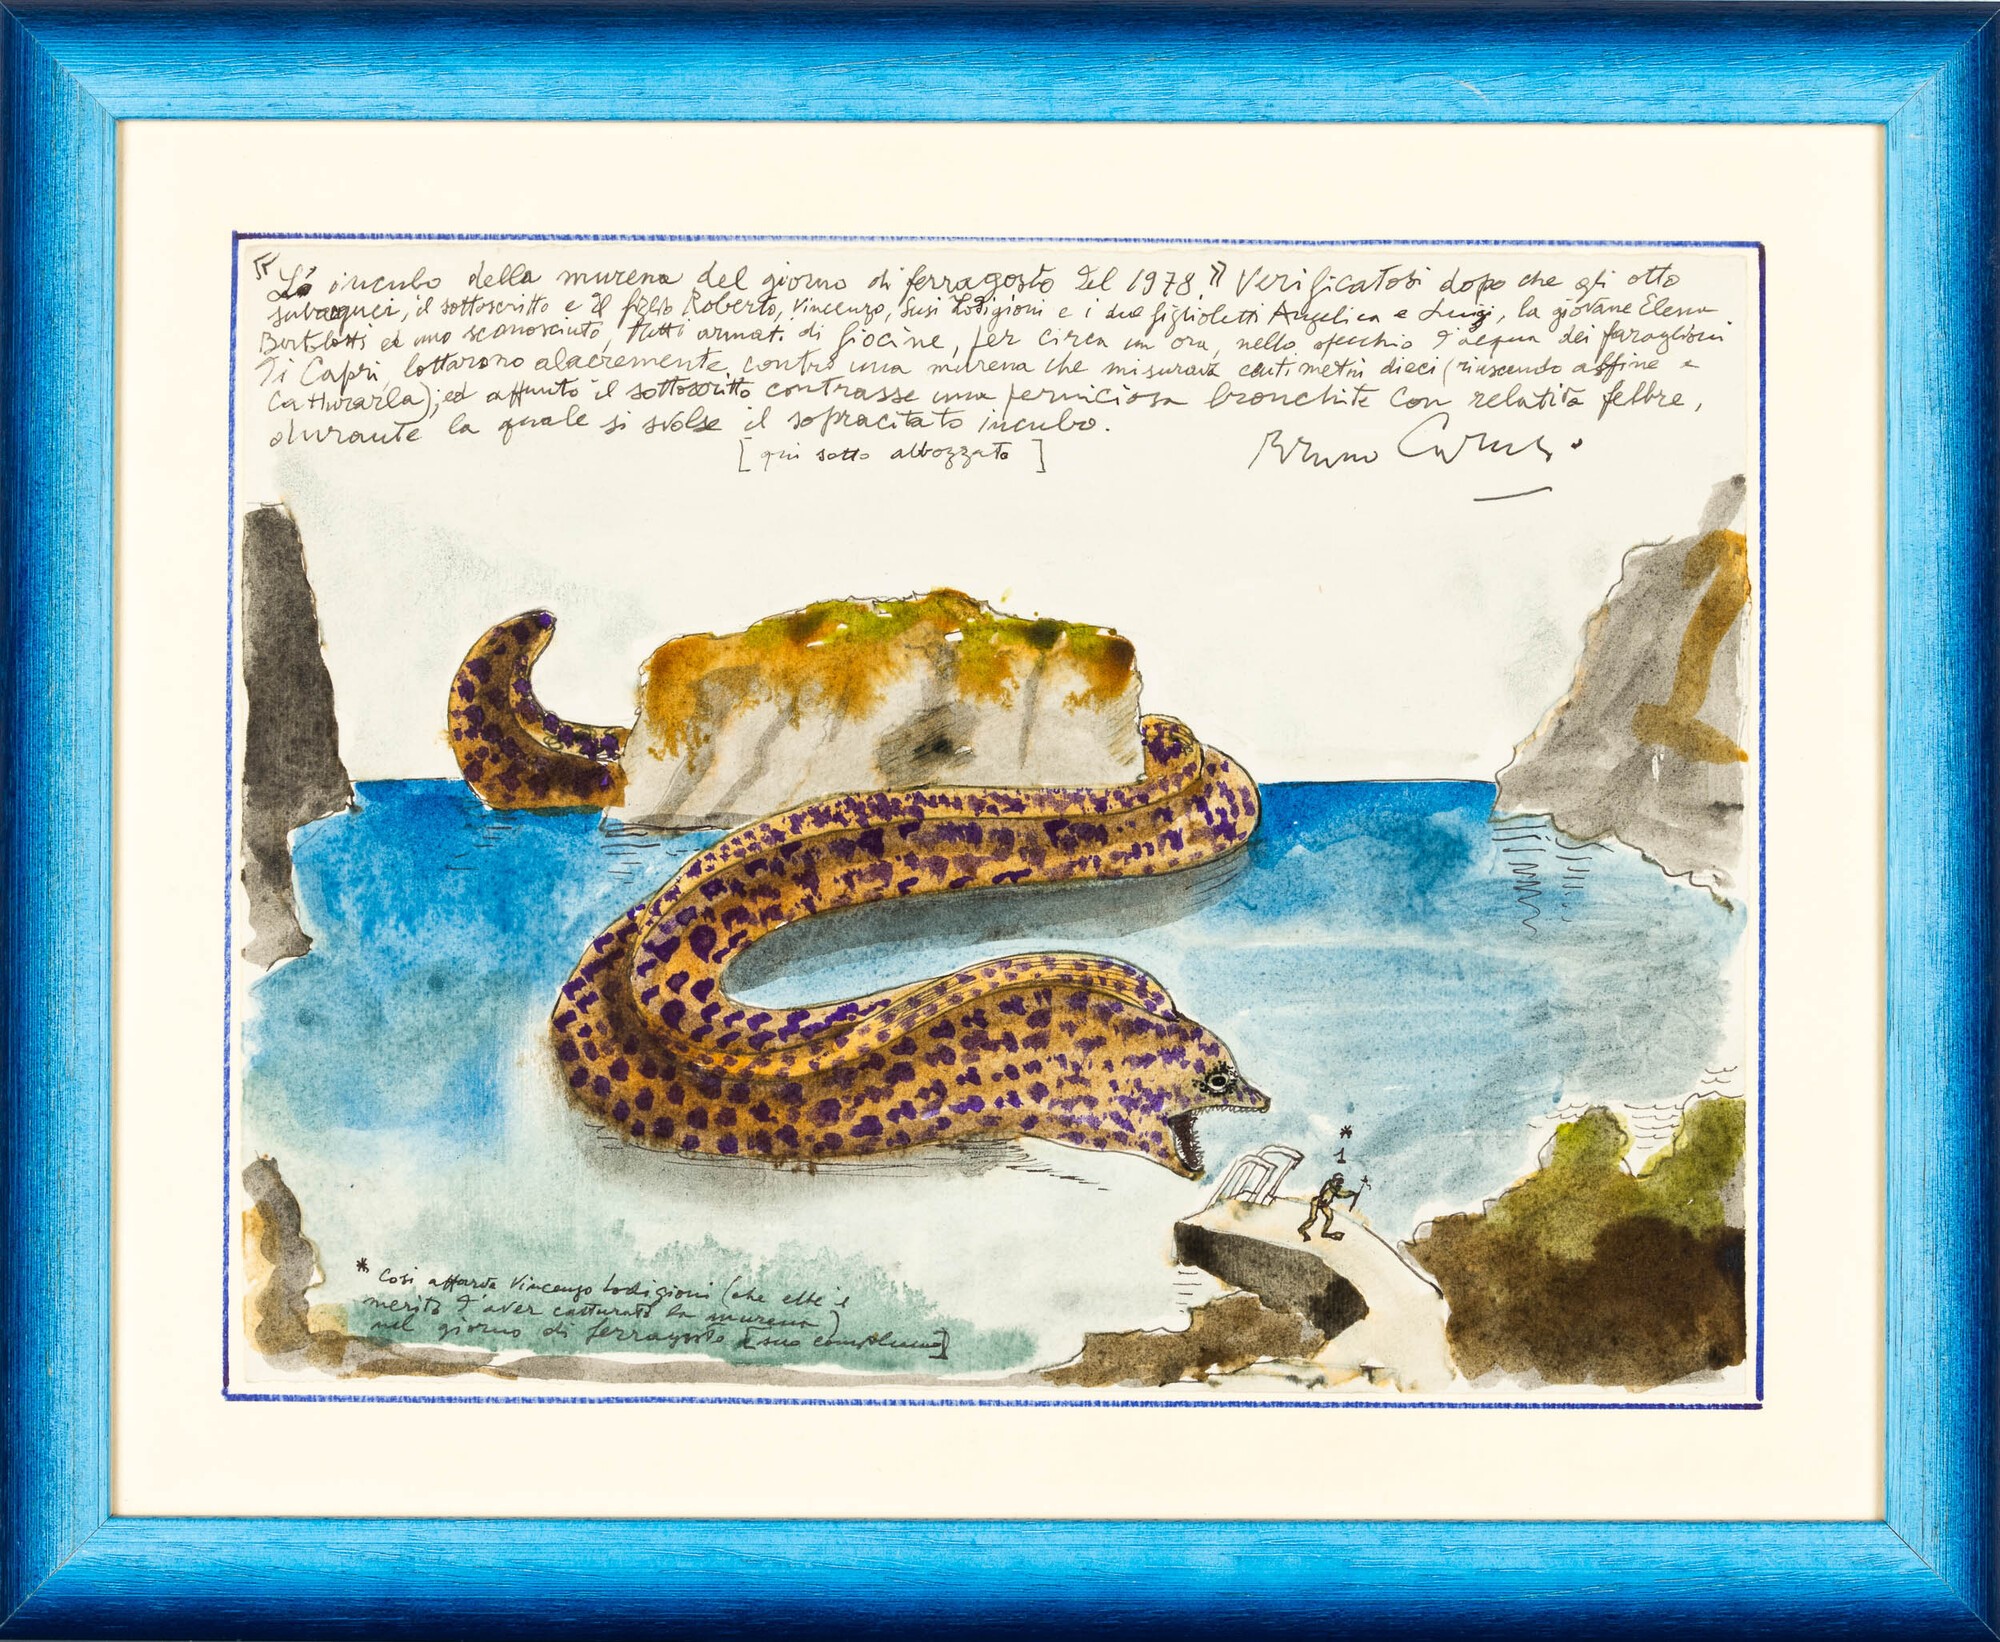 "Lo incubo della murena del giorno di ferragosto del 1978." Verificatosi dopo che gli otto
subacquei, il sottoscritto e il figlio Roberto, Vincenzo, Susi Lodigioni e i due figlioletti Angelica e Luigi, la giovane Elena
Bertolotti ed uno sconosciuto, tutti armati di fiocine, per circa un'ora, nello specchio d'acqua dei faraglioni
di Capri, lottarono alacremente contro una murena che misurava centimetri dieci (riuscendo alfine a
catturarla); ed appunto il sottoscritto contrasse una perniciosa bronchite con relativa febbre,
durante la quale si svolse il sopracitato incubo.
[qui sotto abbozzato]
Bruno Caruso.
*
1
* Così affronta Vincenzo Lodigioni (che ebbe il
merito d'aver catturato la murena)
nel giorno di ferragosto [suo compleanno]